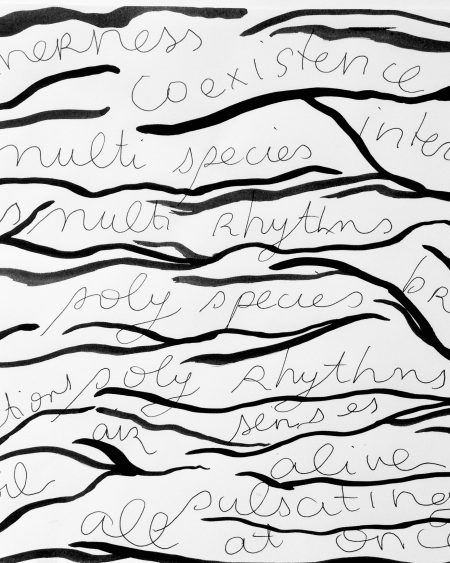 nerness
coexistence
inter
multi species
s multi rhythms
poly species br
tions poly rhythms
air senses
alive
oil pulsating
all at once